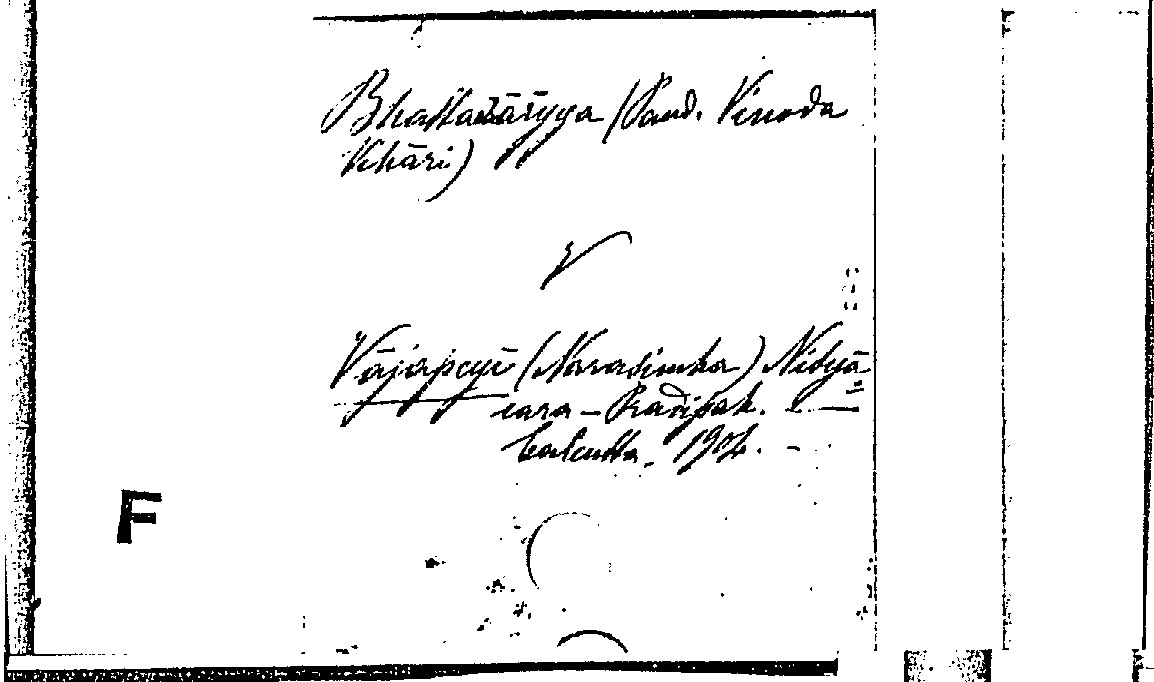 Bhattaẋāryya (Pand. Vinoda
Vihāri)
V
Vājapeyī (Narasimha) Nityā
cara – Pradipah.
Calcutta. 1904. –
F